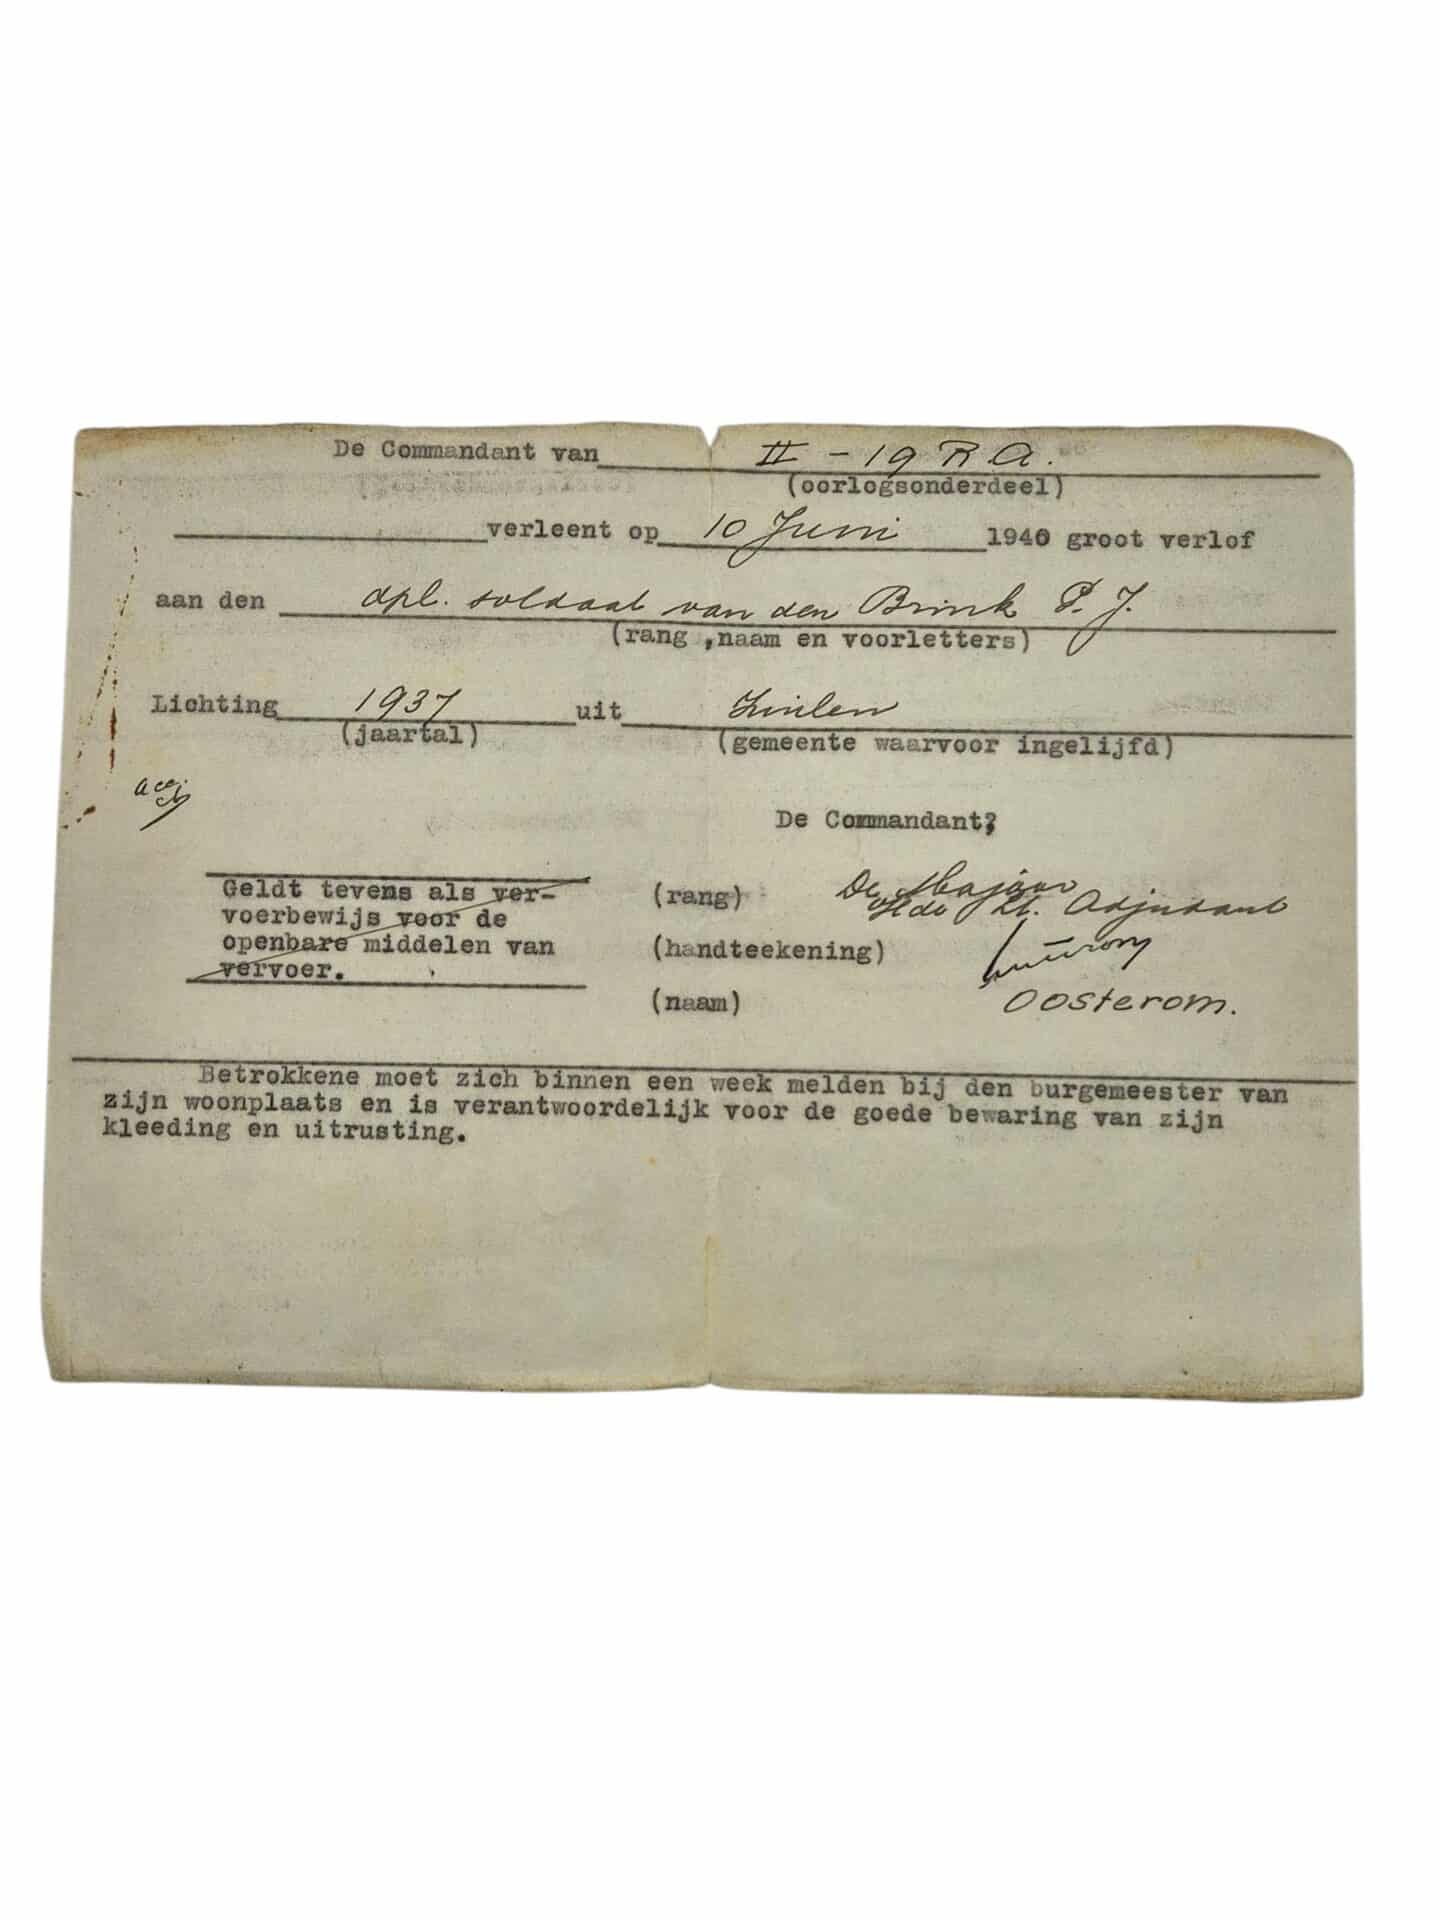 De Commandant van II - 19 R A.
(oorlogsonderdeel)
verleent op 10 Juni 1940 groot verlof
aan den dpl. soldaat van den Brink P. J.
(rang ,naam en voorletters)
Lichting 1937 uit
(jaartal) (gemeente waarvoor ingelijfd)
De Commandant,
Geldt tevens als ver-
voerbewijs voor de
openbare middelen van
vervoer.
(rang) De Majoor
Lt. Adjudant
(handteekening)
(naam) Oosterom.
Betrokkene moet zich binnen een week melden bij den burgemeester van
zijn woonplaats en is verantwoordelijk voor de goede bewaring van zijn
kleeding en uitrusting.